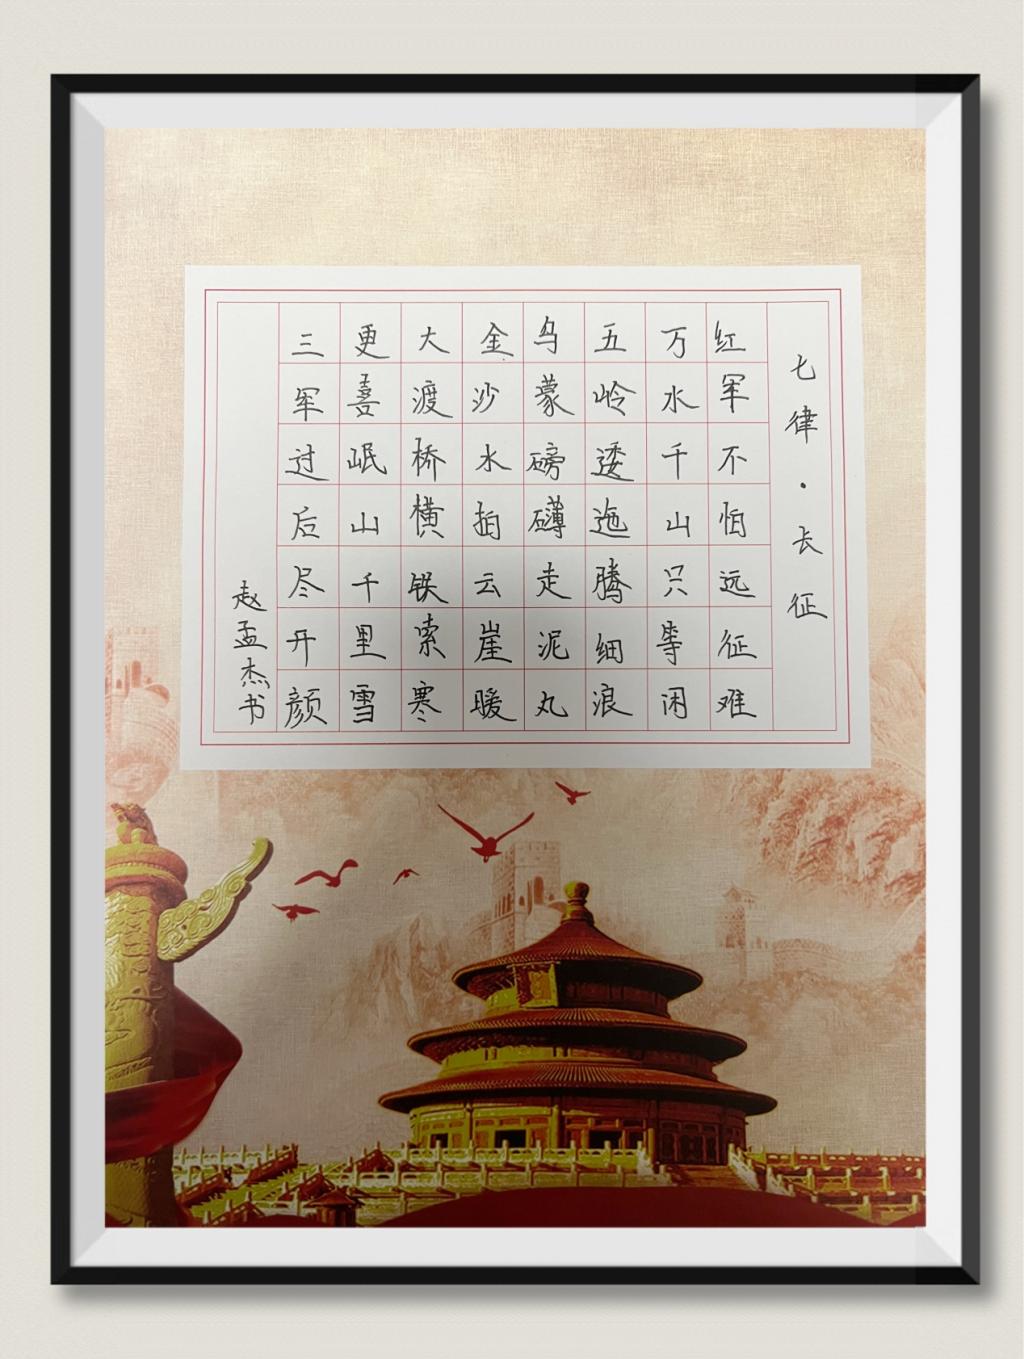 七律·长征
红军不怕远征难
万水千山只等闲
五岭逶迤腾细浪
乌蒙磅礴走泥丸
金沙水拍云崖暖
大渡桥横铁索寒
更喜岷山千里雪
三军过后尽开颜
赵孟杰书